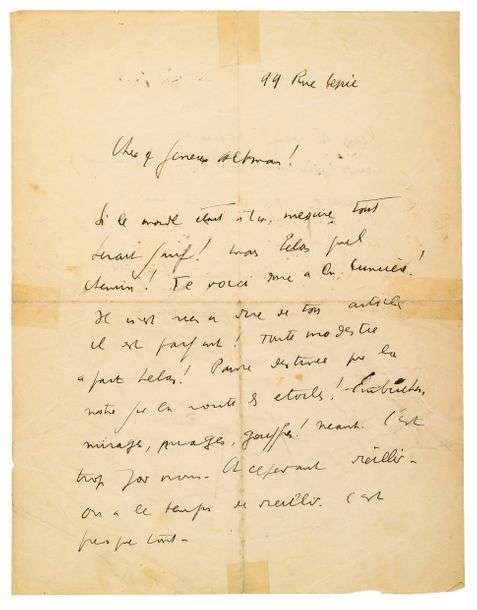 99 Rue Lepic
Cher & généreux Altman!
Si le monde était à ta mesure tout
serait juif! mais hélas quel
chemin! Te voici mué à la lumière!
Il n'est rien à dire de ton article
il est parfait! toute modestie
à part hélas! Pauvre destinée que la
nôtre sur la route des étoiles! Embûches,
mirages, nuages, gouffres! néant. C'est
trop pour nous. Et cependant vieillir.
on a le temps de vieillir. C'est
presque tout.